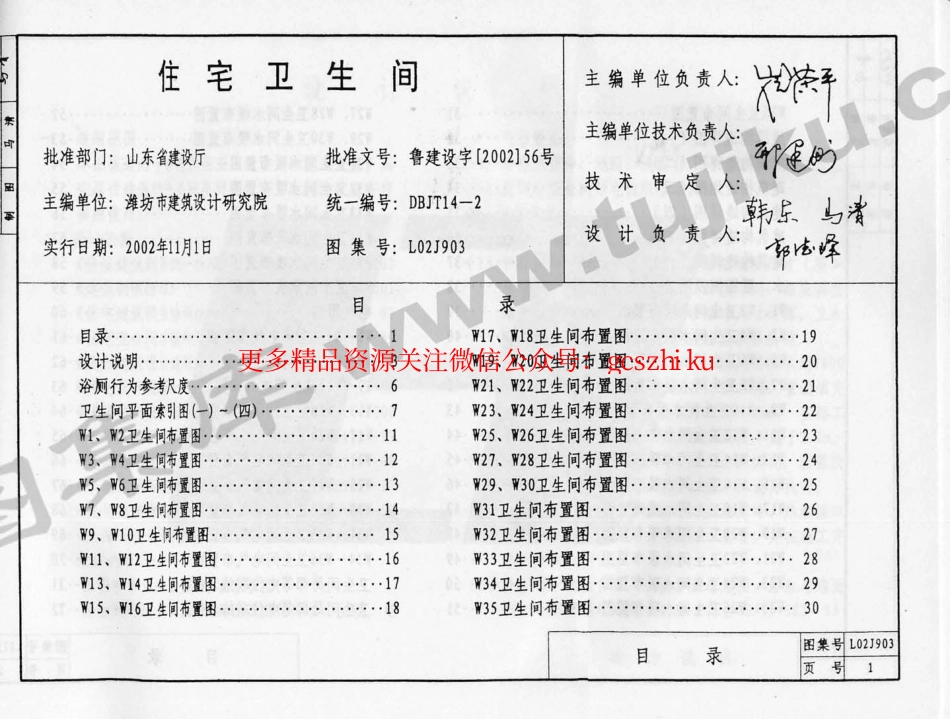 住宅卫生间
批准部门：山东省建设厅 批准文号：鲁建设字[2002]56号
主编单位：潍坊市建筑设计研究院 统一编号：DBJT14—2
实行日期：2002年11月1日 图集号：L02J903
主编单位负责人：
主编单位技术负责人：
技术审定人：韩东 马清
设计负责人：
目 录
目录 1
设计说明
浴厕行为参考尺度 6
卫生间平面索引图(一)~(四) 7
W1、W2卫生间布置图 11
W3、W4卫生间布置图 12
W5、W6卫生间布置图 13
W7、W8卫生间布置图 14
W9、W10卫生间布置图 15
W11、W12卫生间布置图 16
W13、W14卫生间布置图 17
W15、W16卫生间布置图 18
W17、W18卫生间布置图 19
W19、W20卫生间布置图 20
W21、W22卫生间布置图 21
W23、W24卫生间布置图 22
W25、W26卫生间布置图 23
W27、W28卫生间布置图 24
W29、W30卫生间布置图 25
W31卫生间布置图 26
W32卫生间布置图 27
W33卫生间布置图 28
W34卫生间布置图 29
W35卫生间布置图 30
更多精品资源关注微信公众号：gcszhiku
图集库 www.tujiku.c
目 录 图集号 L02J903
页号 1
制图